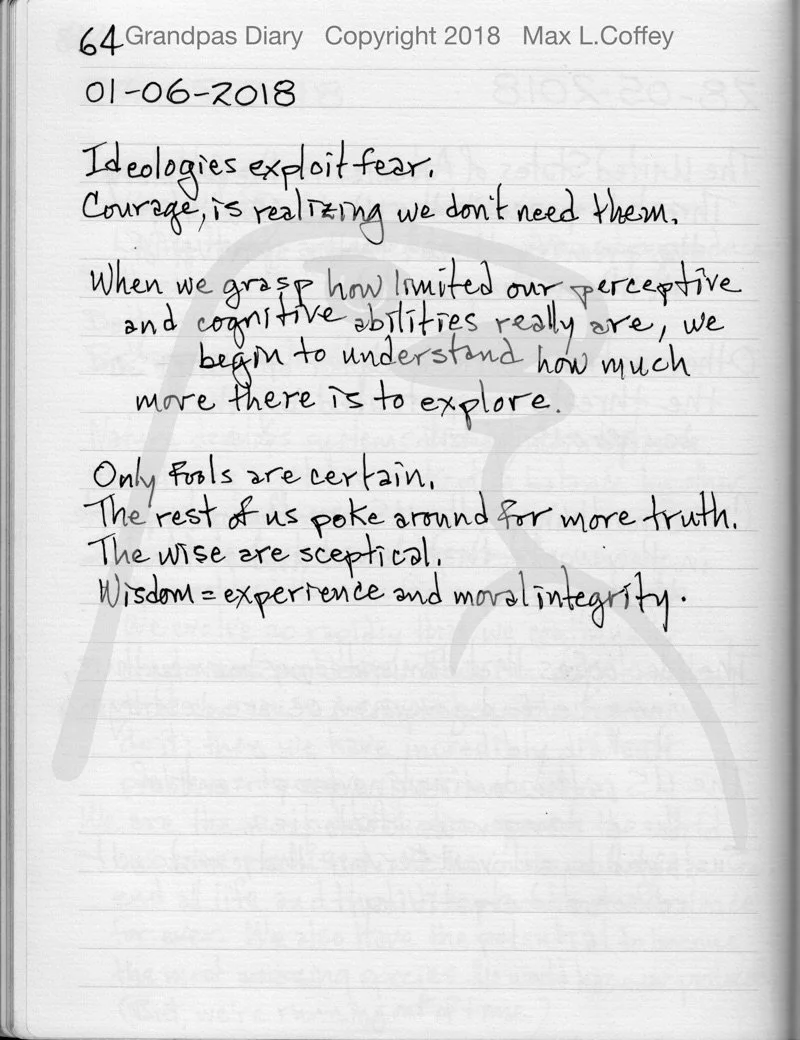 64 Grandpas Diary Copyright 2018 Max L.Coffey
01-06-2018
Ideologies exploit fear.
Courage, is realizing we don't need them.
When we grasp how limited our perceptive
and cognitive abilities really are, we
begin to understand how much
more there is to explore.
Only fools are certain.
The rest of us poke around for more truth.
The wise are sceptical.
Wisdom = experience and moral integrity.